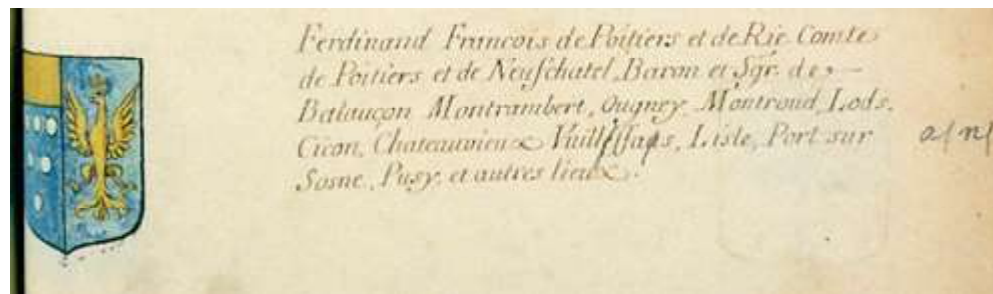 Ferdinand François de Poitiers et de Rie Comte
de Poitiers et de Neufchatel, Baron et Sgr. de
Balançon Montrambert, Ougney, Montroud, Lods,
Cicon, Chateauvieux, Lisle, Port sur a/ n/
Sosne, Pusy, et autres lieux.